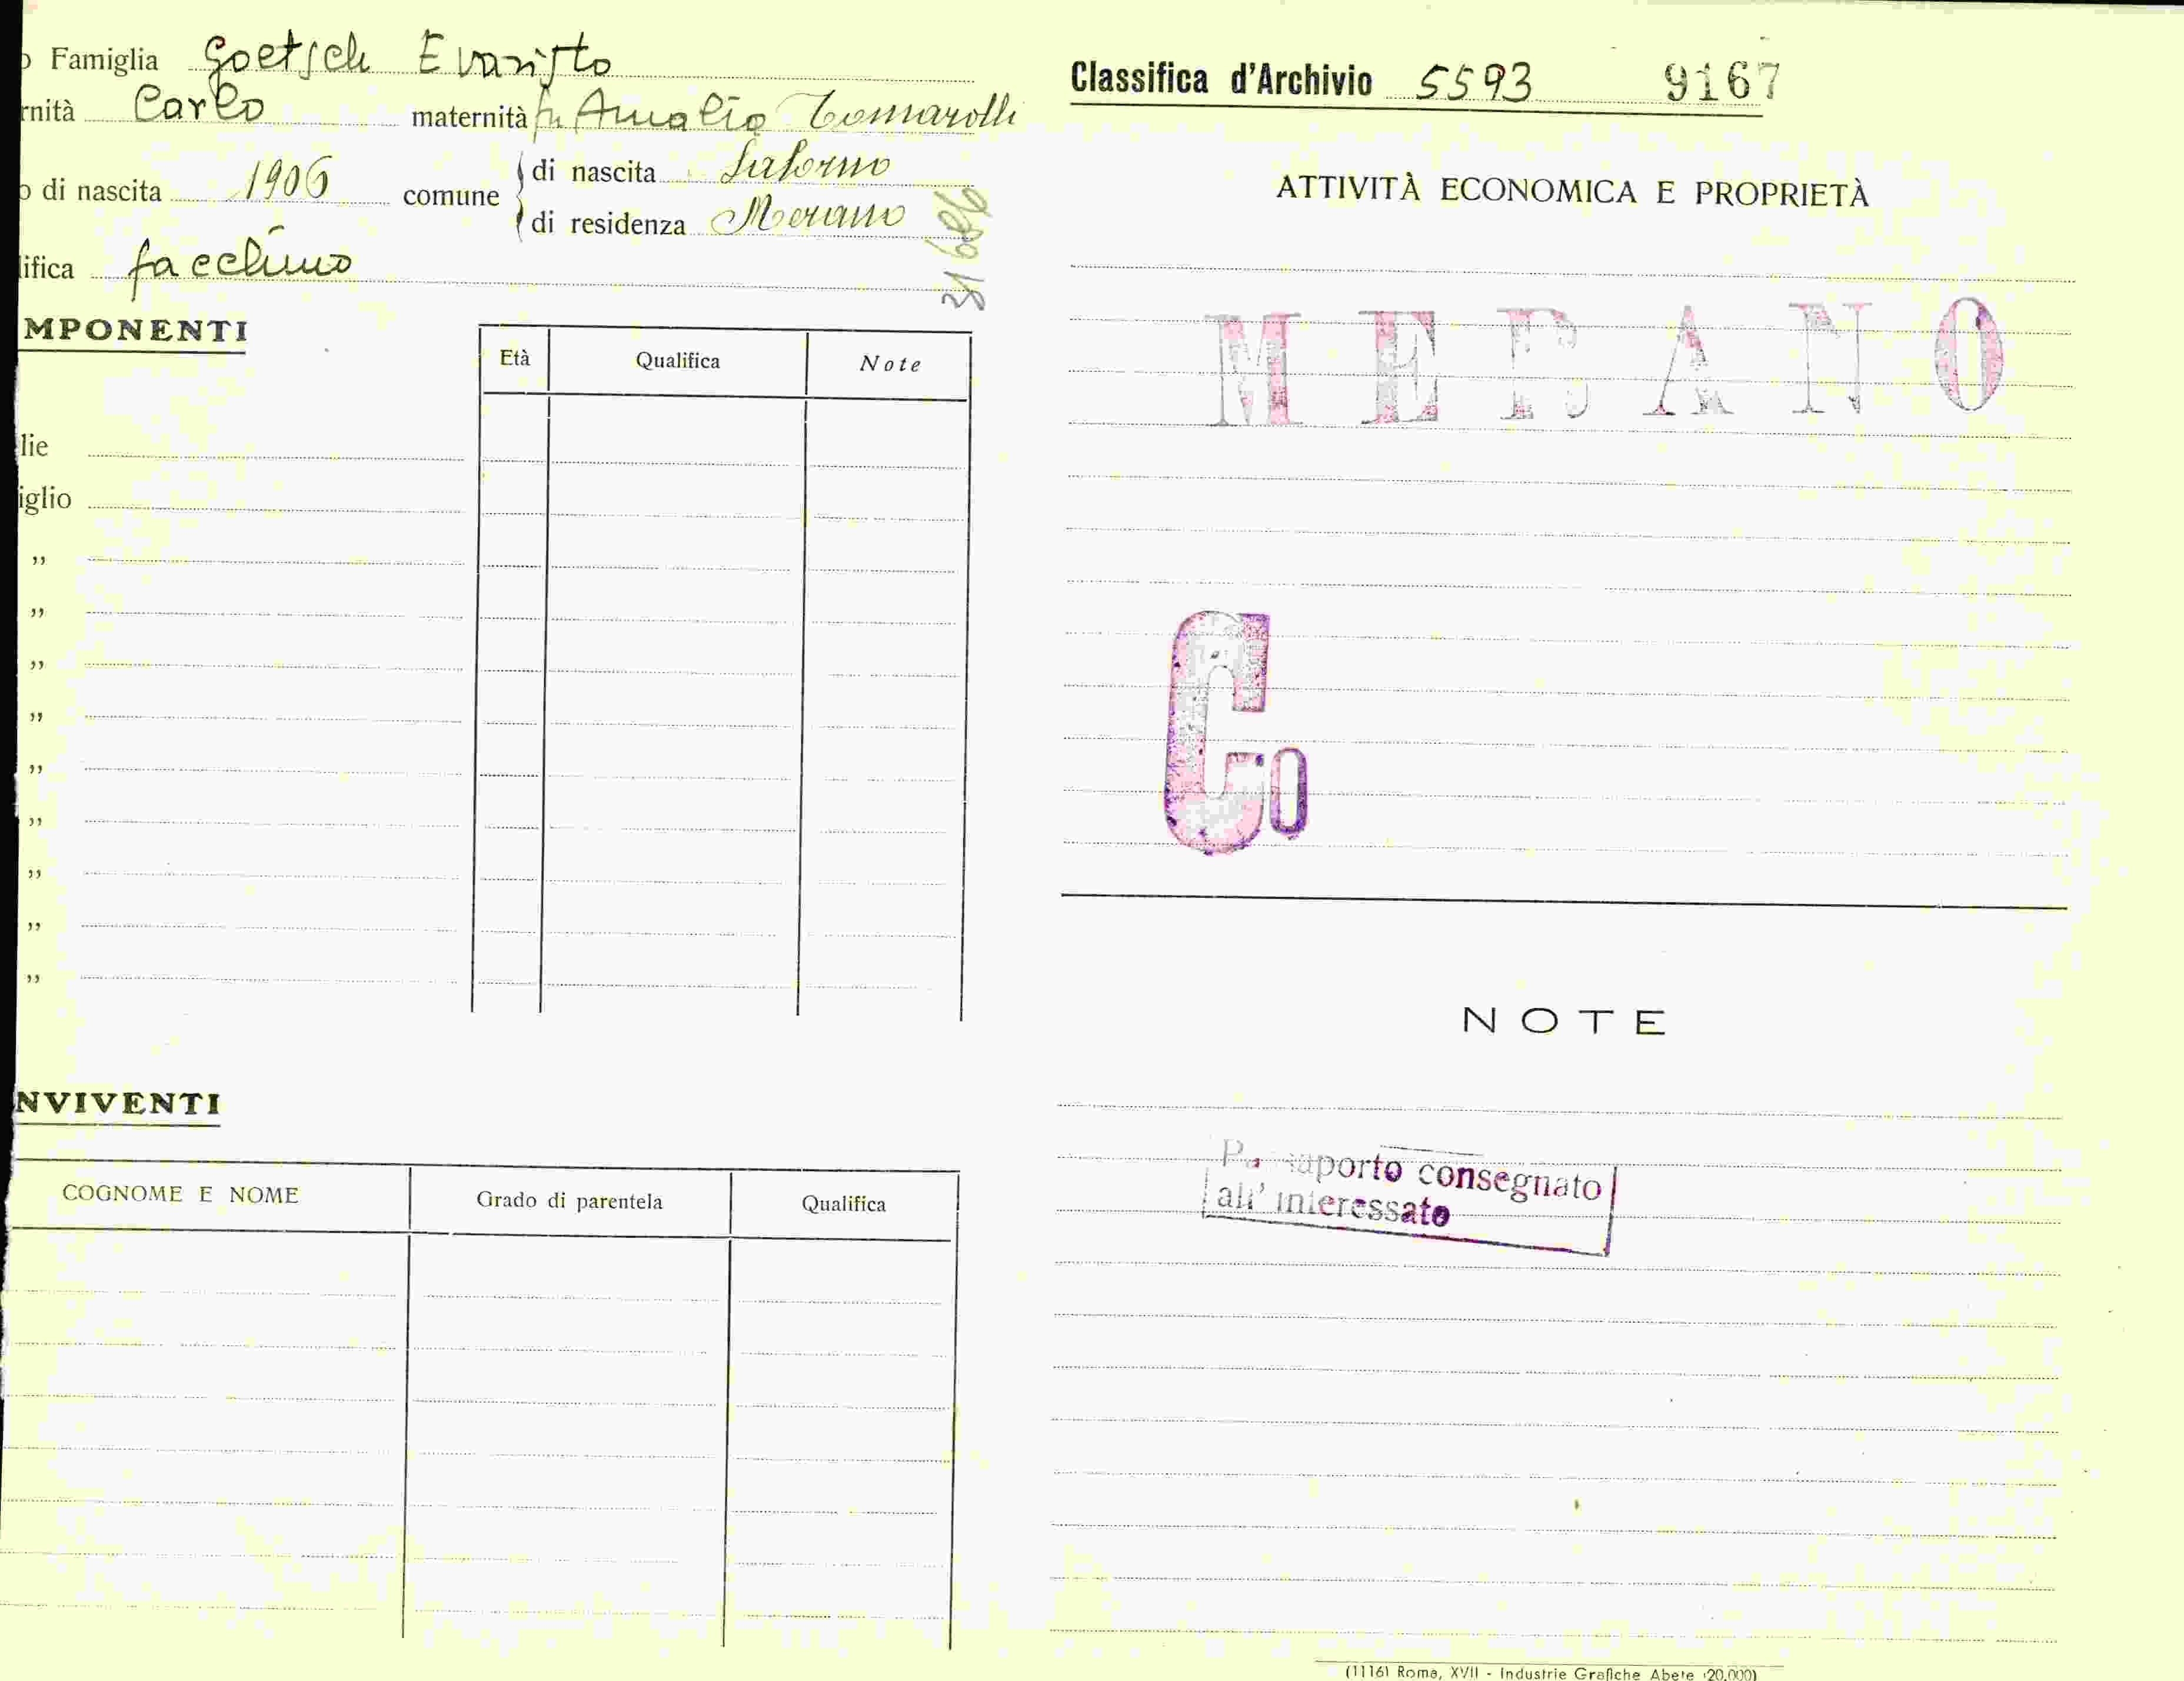 o Famiglia Goetsch Evaristo
rnità Carlo maternità fu Amalia Tomarolli
o di nascita 1906 comune di nascita Salorno
di residenza Merano
ifica facchino
31686
MPONENTI
Età Qualifica Note
lie
iglio
"
"
"
"
"
"
"
"
"
NVIVENTI
COGNOME E NOME Grado di parentela Qualifica
Classifica d'Archivio 5593 9167
ATTIVITÀ ECONOMICA E PROPRIETÀ
MERANO
Co
NOTE
Passaporto consegnato
all' interessato
(1116) Roma, XVII - Industrie Grafiche Abete (20.000)